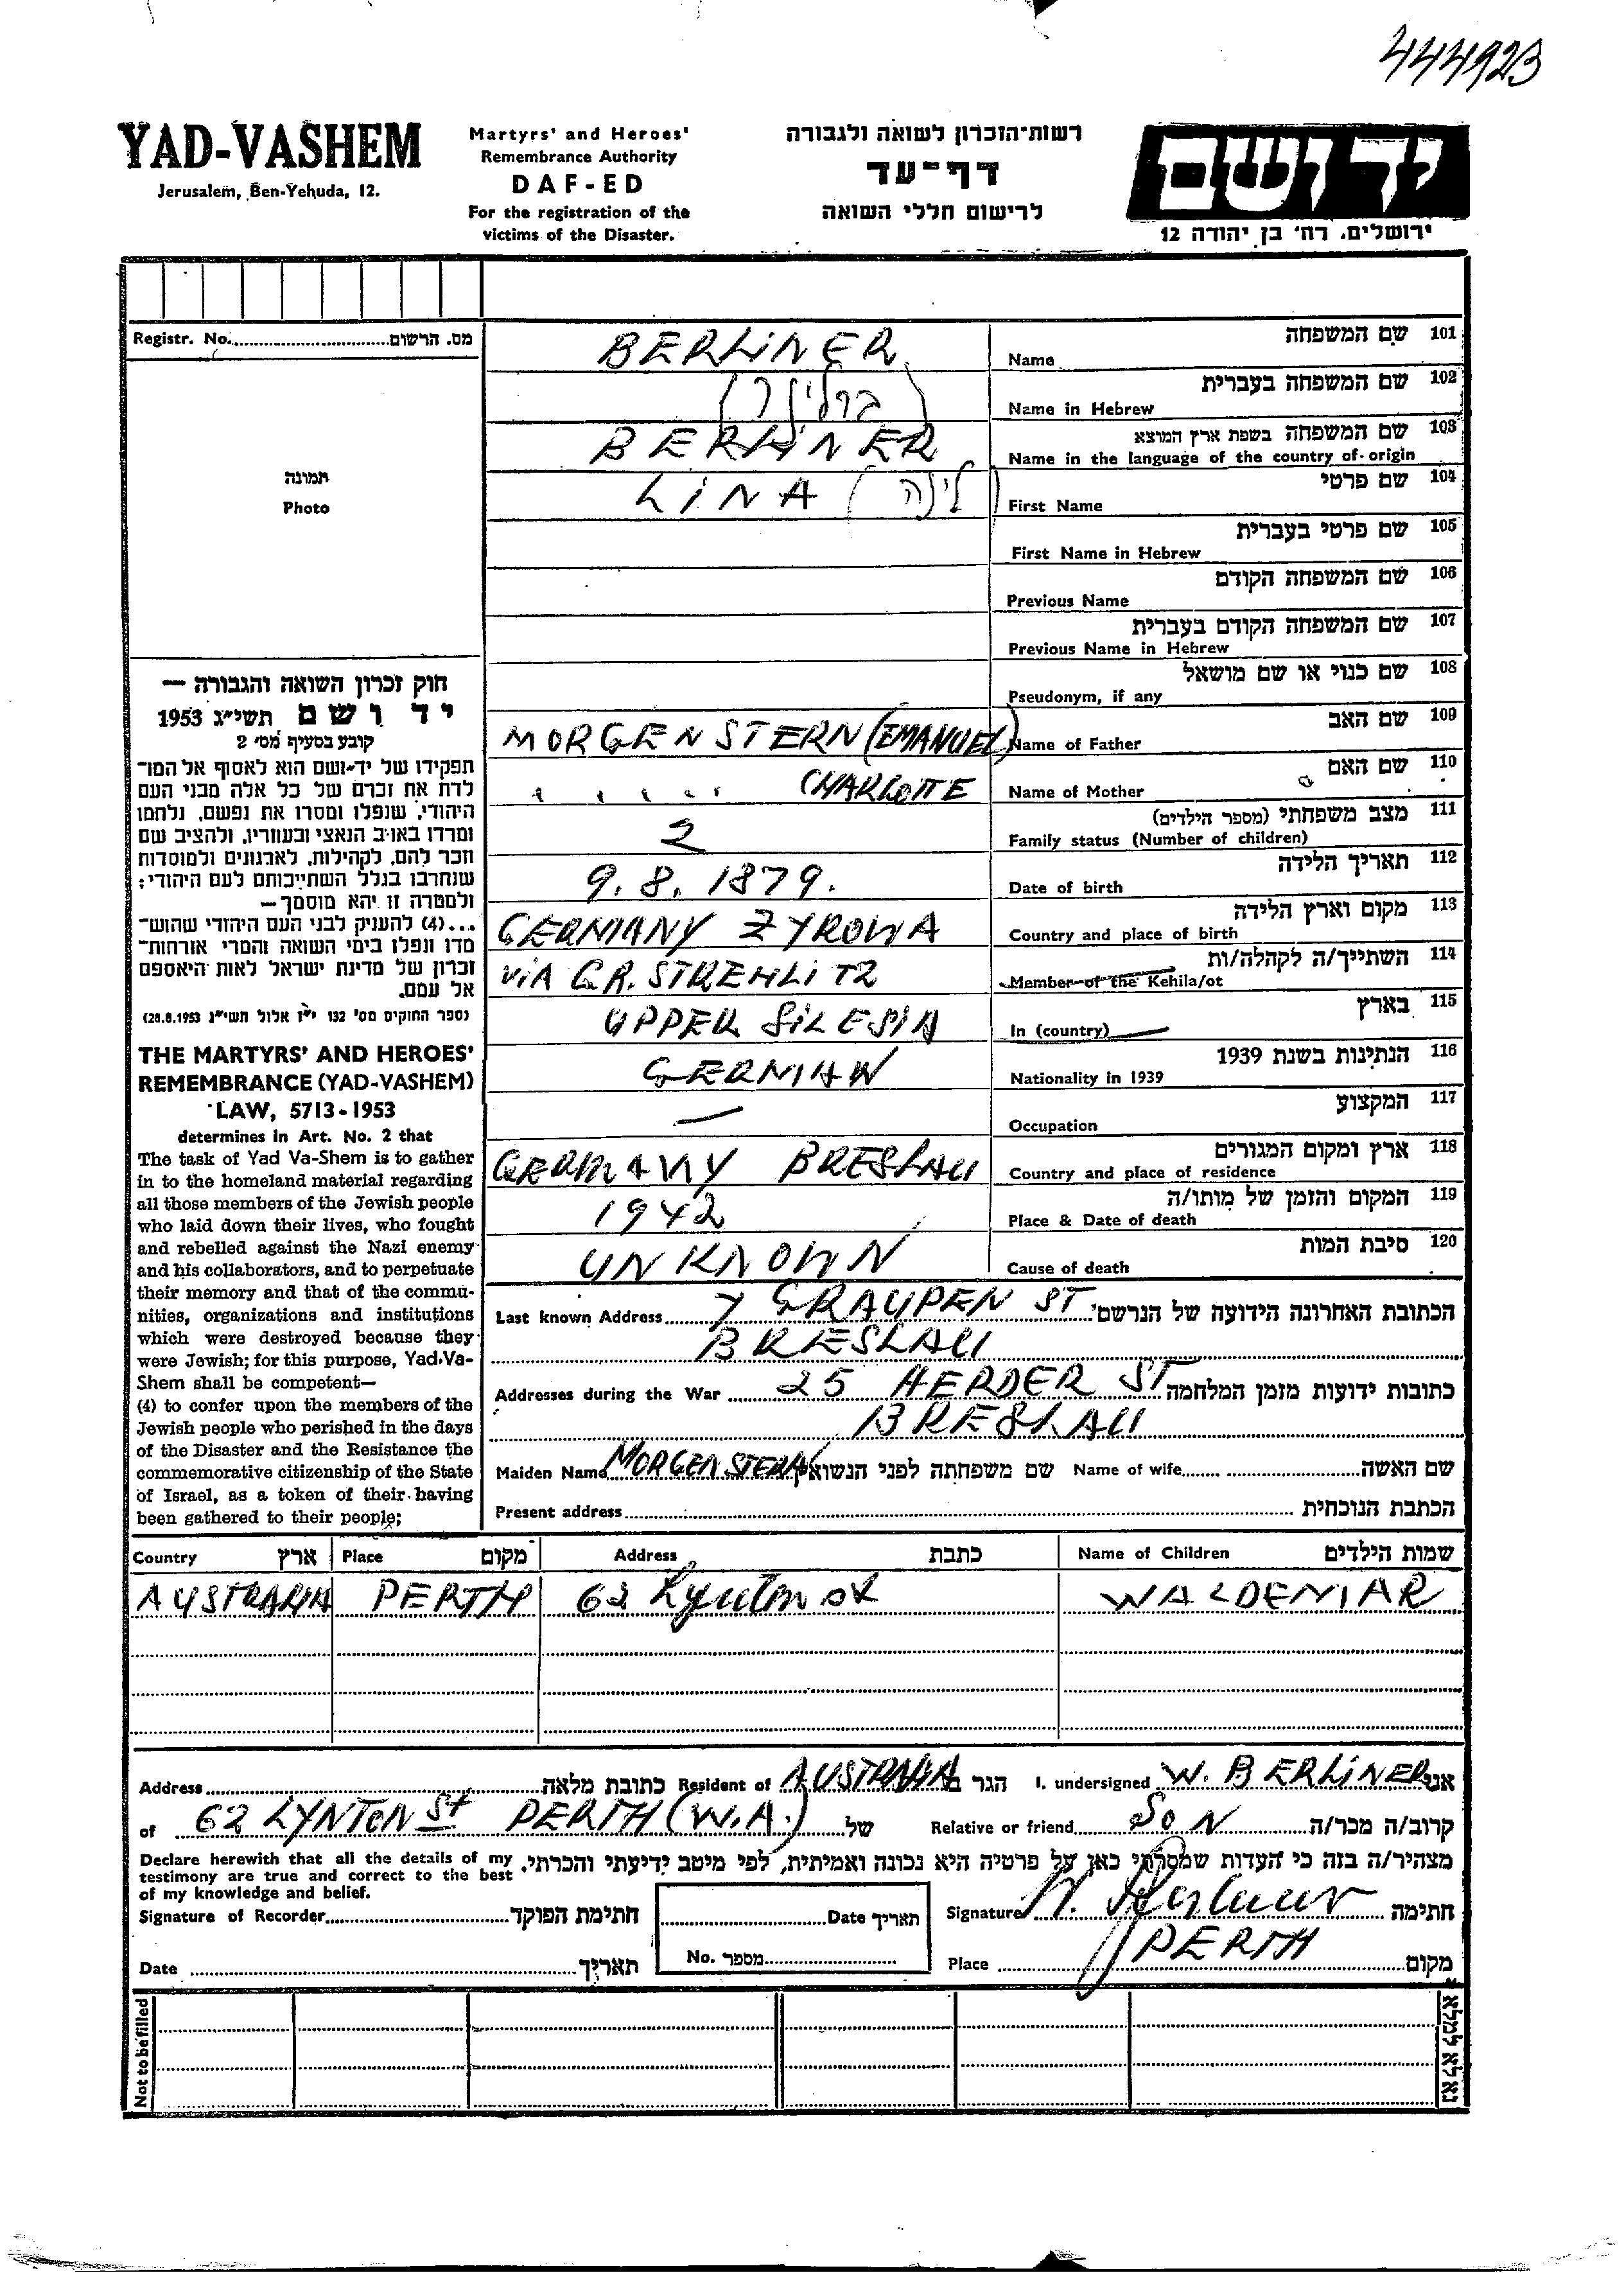 444923
YAD-VASHEM
Jerusalem, Ben-Yehuda, 12.
Martyrs' and Heroes'
Remembrance Authority
DAF-ED
For the registration of the
victims of the Disaster.
רשות-הזכרון לשואה ולגבורה
דף-עד
לרישום חללי השואה
יד ושם
ירושלים, רח' בן יהודה 12
Registr. No. מס. הרשום
תמונה
Photo
BERLINER Name שם המשפחה 101
(ברלינר) Name in Hebrew שם המשפחה בעברית 102
BERLINER Name in the language of the country of origin שם המשפחה בשפת ארץ המוצא 103
LINA (לינה) First Name שם פרטי 104
First Name in Hebrew שם פרטי בעברית 105
Previous Name שם המשפחה הקודם 106
Previous Name in Hebrew שם המשפחה הקודם בעברית 107
Pseudonym, if any שם כנוי או שם מושאל 108
MORGENSTERN (EMANUEL) Name of Father שם האב 109
" " " " " CHARLOTTE Name of Mother שם האם 110
2 Family status (Number of children) מצב משפחתי (מספר הילדים) 111
9.8.1879. Date of birth תאריך הלידה 112
GERMANY ZYROWA Country and place of birth מקום וארץ הלידה 113
VIA GR. STREHLITZ Member of the Kehila/ot השתייך/ה לקהלה/ות 114
UPPER SILESIA In (country) בארץ 115
GERMAN Nationality in 1939 הנתינות בשנת 1939 116
— Occupation המקצוע 117
GERMANY BRESLAU Country and place of residence ארץ ומקום המגורים 118
1942 Place & Date of death המקום והזמן של מותו/ה 119
UNKNOWN Cause of death סיבת המות 120
חוק זכרון השואה והגבורה —
יד ושם תשי"ג 1953
קובע בסעיף מס' 2
תפקידו של יד-ושם הוא לאסוף אל המו-
לדת את זכרם של כל אלה מבני העם
היהודי, שנפלו ומסרו את נפשם, נלחמו
ומרדו באויב הנאצי ובעוזריו, ולהציב שם
וזכר להם, לקהילות, לארגונים ולמוסדות
שנחרבו בגלל השתייכותם לעם היהודי;
ולמטרה זו יהא מוסמך—
...(4) להעניק לבני העם היהודי שהוש-
מדו ונפלו בימי השואה והמרי אזרחות-
זכרון של מדינת ישראל לאות היאספם
אל עמם.
(ספר החוקים מס' 132 י"ז אלול תשי"ג 28.8.1953)
THE MARTYRS' AND HEROES'
REMEMBRANCE (YAD-VASHEM)
LAW, 5713-1953
determines in Art. No. 2 that
The task of Yad Va-Shem is to gather
in to the homeland material regarding
all those members of the Jewish people
who laid down their lives, who fought
and rebelled against the Nazi enemy
and his collaborators, and to perpetuate
their memory and that of the commu-
nities, organizations and institutions
which were destroyed because they
were Jewish; for this purpose, Yad-Va-
Shem shall be competent—
(4) to confer upon the members of the
Jewish people who perished in the days
of the Disaster and the Resistance the
commemorative citizenship of the State
of Israel, as a token of their having
been gathered to their people;
Last known Address 7 GRAUPEN ST הכתובת האחרונה הידועה של הנרשם
BRESLAU
Addresses during the War 25 HERDER ST כתובות ידועות מזמן המלחמה
BRESLAU
Maiden Name MORGENSTERN שם משפחתה לפני הנשואין Name of wife שם האשה
Present address הכתבת הנוכחית
Country ארץ Place מקום Address כתבת Name of Children שמות הילדים
AUSTRALIA PERTH 62 Lynton st WALDEMAR
Address כתובת מלאה Resident of AUSTRALIA הגר ב I. undersigned W. BERLINER אני
of 62 LYNTON St PERTH (W.A.) של Relative or friend SON קרוב/ה מכר/ה
מצהיר/ה בזה כי העדות שמסרתי כאן על פרטיה היא נכונה ואמיתית, לפי מיטב ידיעתי והכרתי.
Declare herewith that all the details of my
testimony are true and correct to the best
of my knowledge and belief.
Signature of Recorder חתימת הפוקד Date תאריך Signature W. Berliner חתימה
Date תאריך No. מספר Place PERTH מקום
Not to be filled נא לא למלא